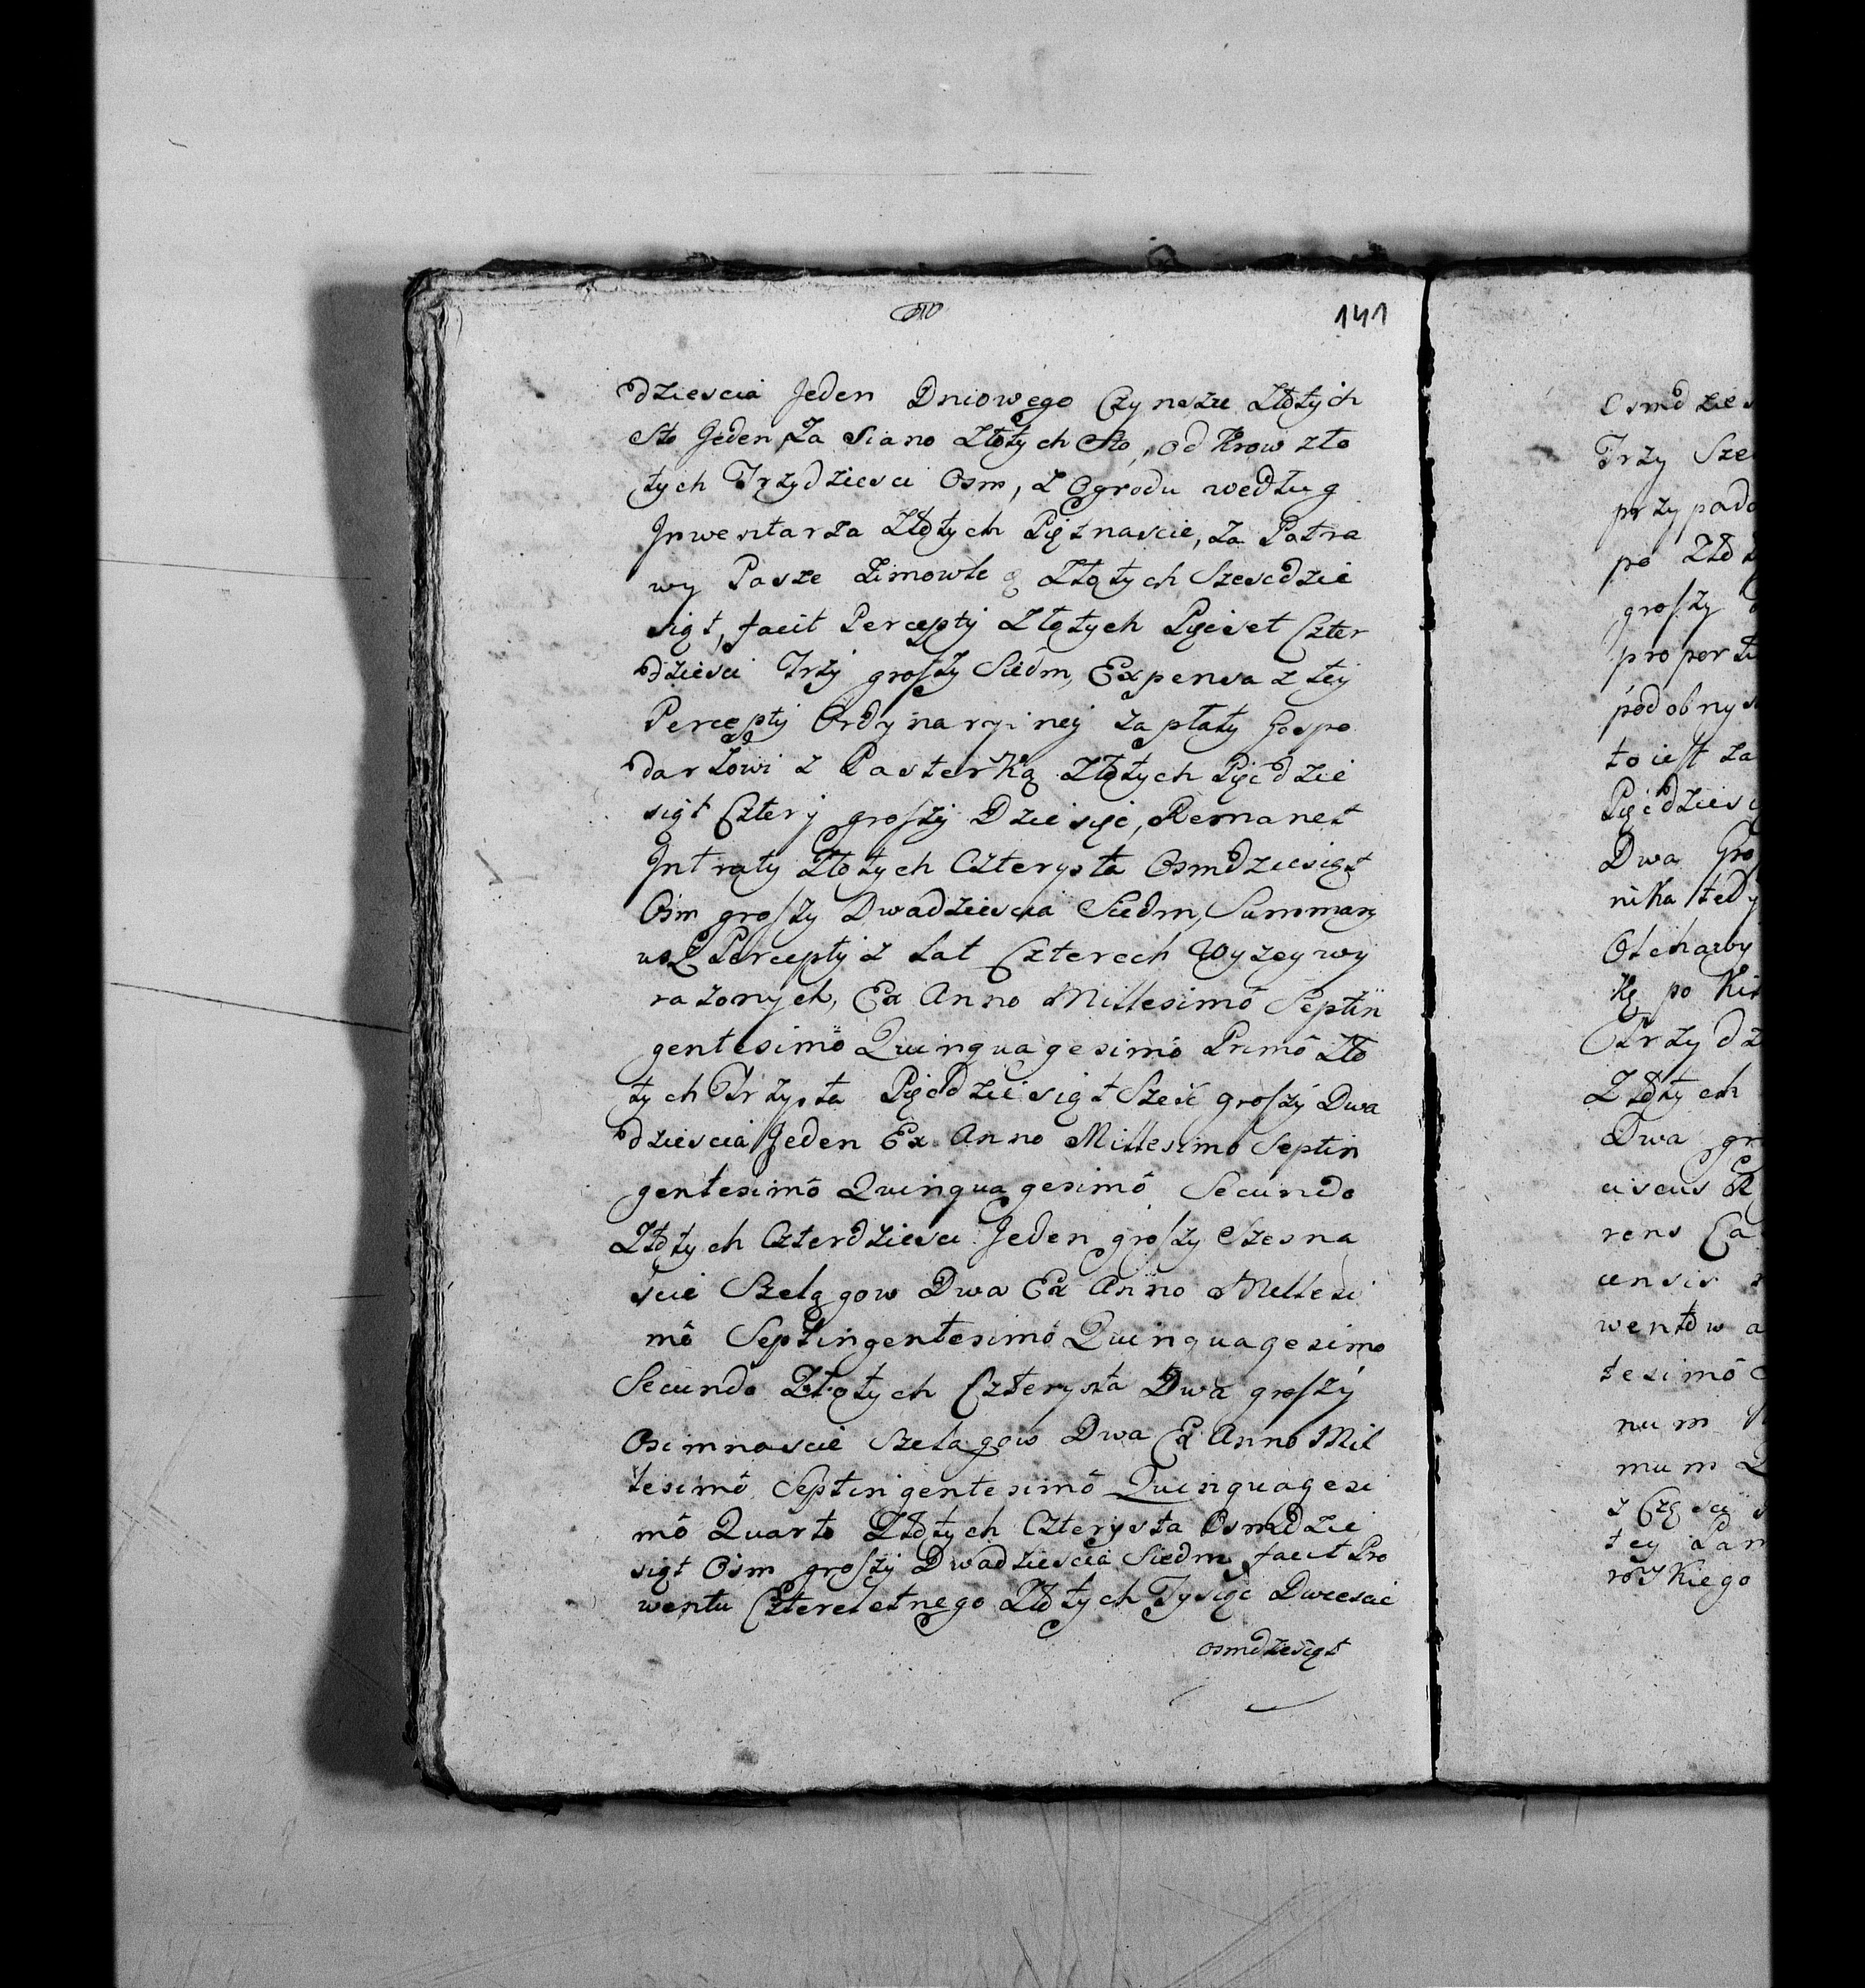 141
dziescia Jeden Dniowego Czynszu Złotych
Sto Jeden, Za Siano Złotych Sto, od Krow zło
tych Trzydziesci Osm, z Ogrodu według
Inwentarza Złotych Piętnascie, za Potra
wy Pasze Zimowle Złotych Szescdzie
siąt, facit Percepty Złotych Pięcset Czter
dziesci Trzy groszy Siedm, Expensa z tey
Percepty Ordynaryinej zapłaty Gospo
darzowi z Pasterką Złotych Pięcdzie
siąt Cztery groszy Dziesięc, Remanet
Intraty Złotych Czterysta Osmdziesiąt
Osm groszy Dwadziescia Siedm, Summary
usz Percepty z Lat Czterech Wyzey wy
razonych, Ex Anno Millesimô Septin
gentesimô Quinquagesimô Primô Zło
tych Trzysta Pięcdziesiąt Szesc groszy Dwa
dziescia Jeden Ex Anno Millesimo Septin
gentesimô Quinquagesimô Secundo
Złotych Czterdziesci Jeden groszy Szesna
scie Szelągow Dwa Ex Anno Millesi
mô Septingentesimô Quinquagesimo
Secundo Złotych Czterysta Dwa groszy
Osimnascie Szelagow Dwa Ex Anno Mil
lesimô Septingentesimô Quinquagesi
mô Quarto Złotych Czterysta Osmdzie
siąt Osm groszy Dwadziescia Siedm, facit Pro
wentu Czteroletnego Złotych Tysiąc Dwiescie
osmdziesiąt
Osmdzies
Trzy Sze
przypada
po Zło
groszy
proporti
podobny
to iest za
Pięcdziesi
Dwa Gro
nika tedy
Ochawy
po
Trzydz
Złotych
Dwa gr
ciscus
rens Ca
censis
wentow a
tesimô
num
mum
z Częsci
tey Pan
rowskiego